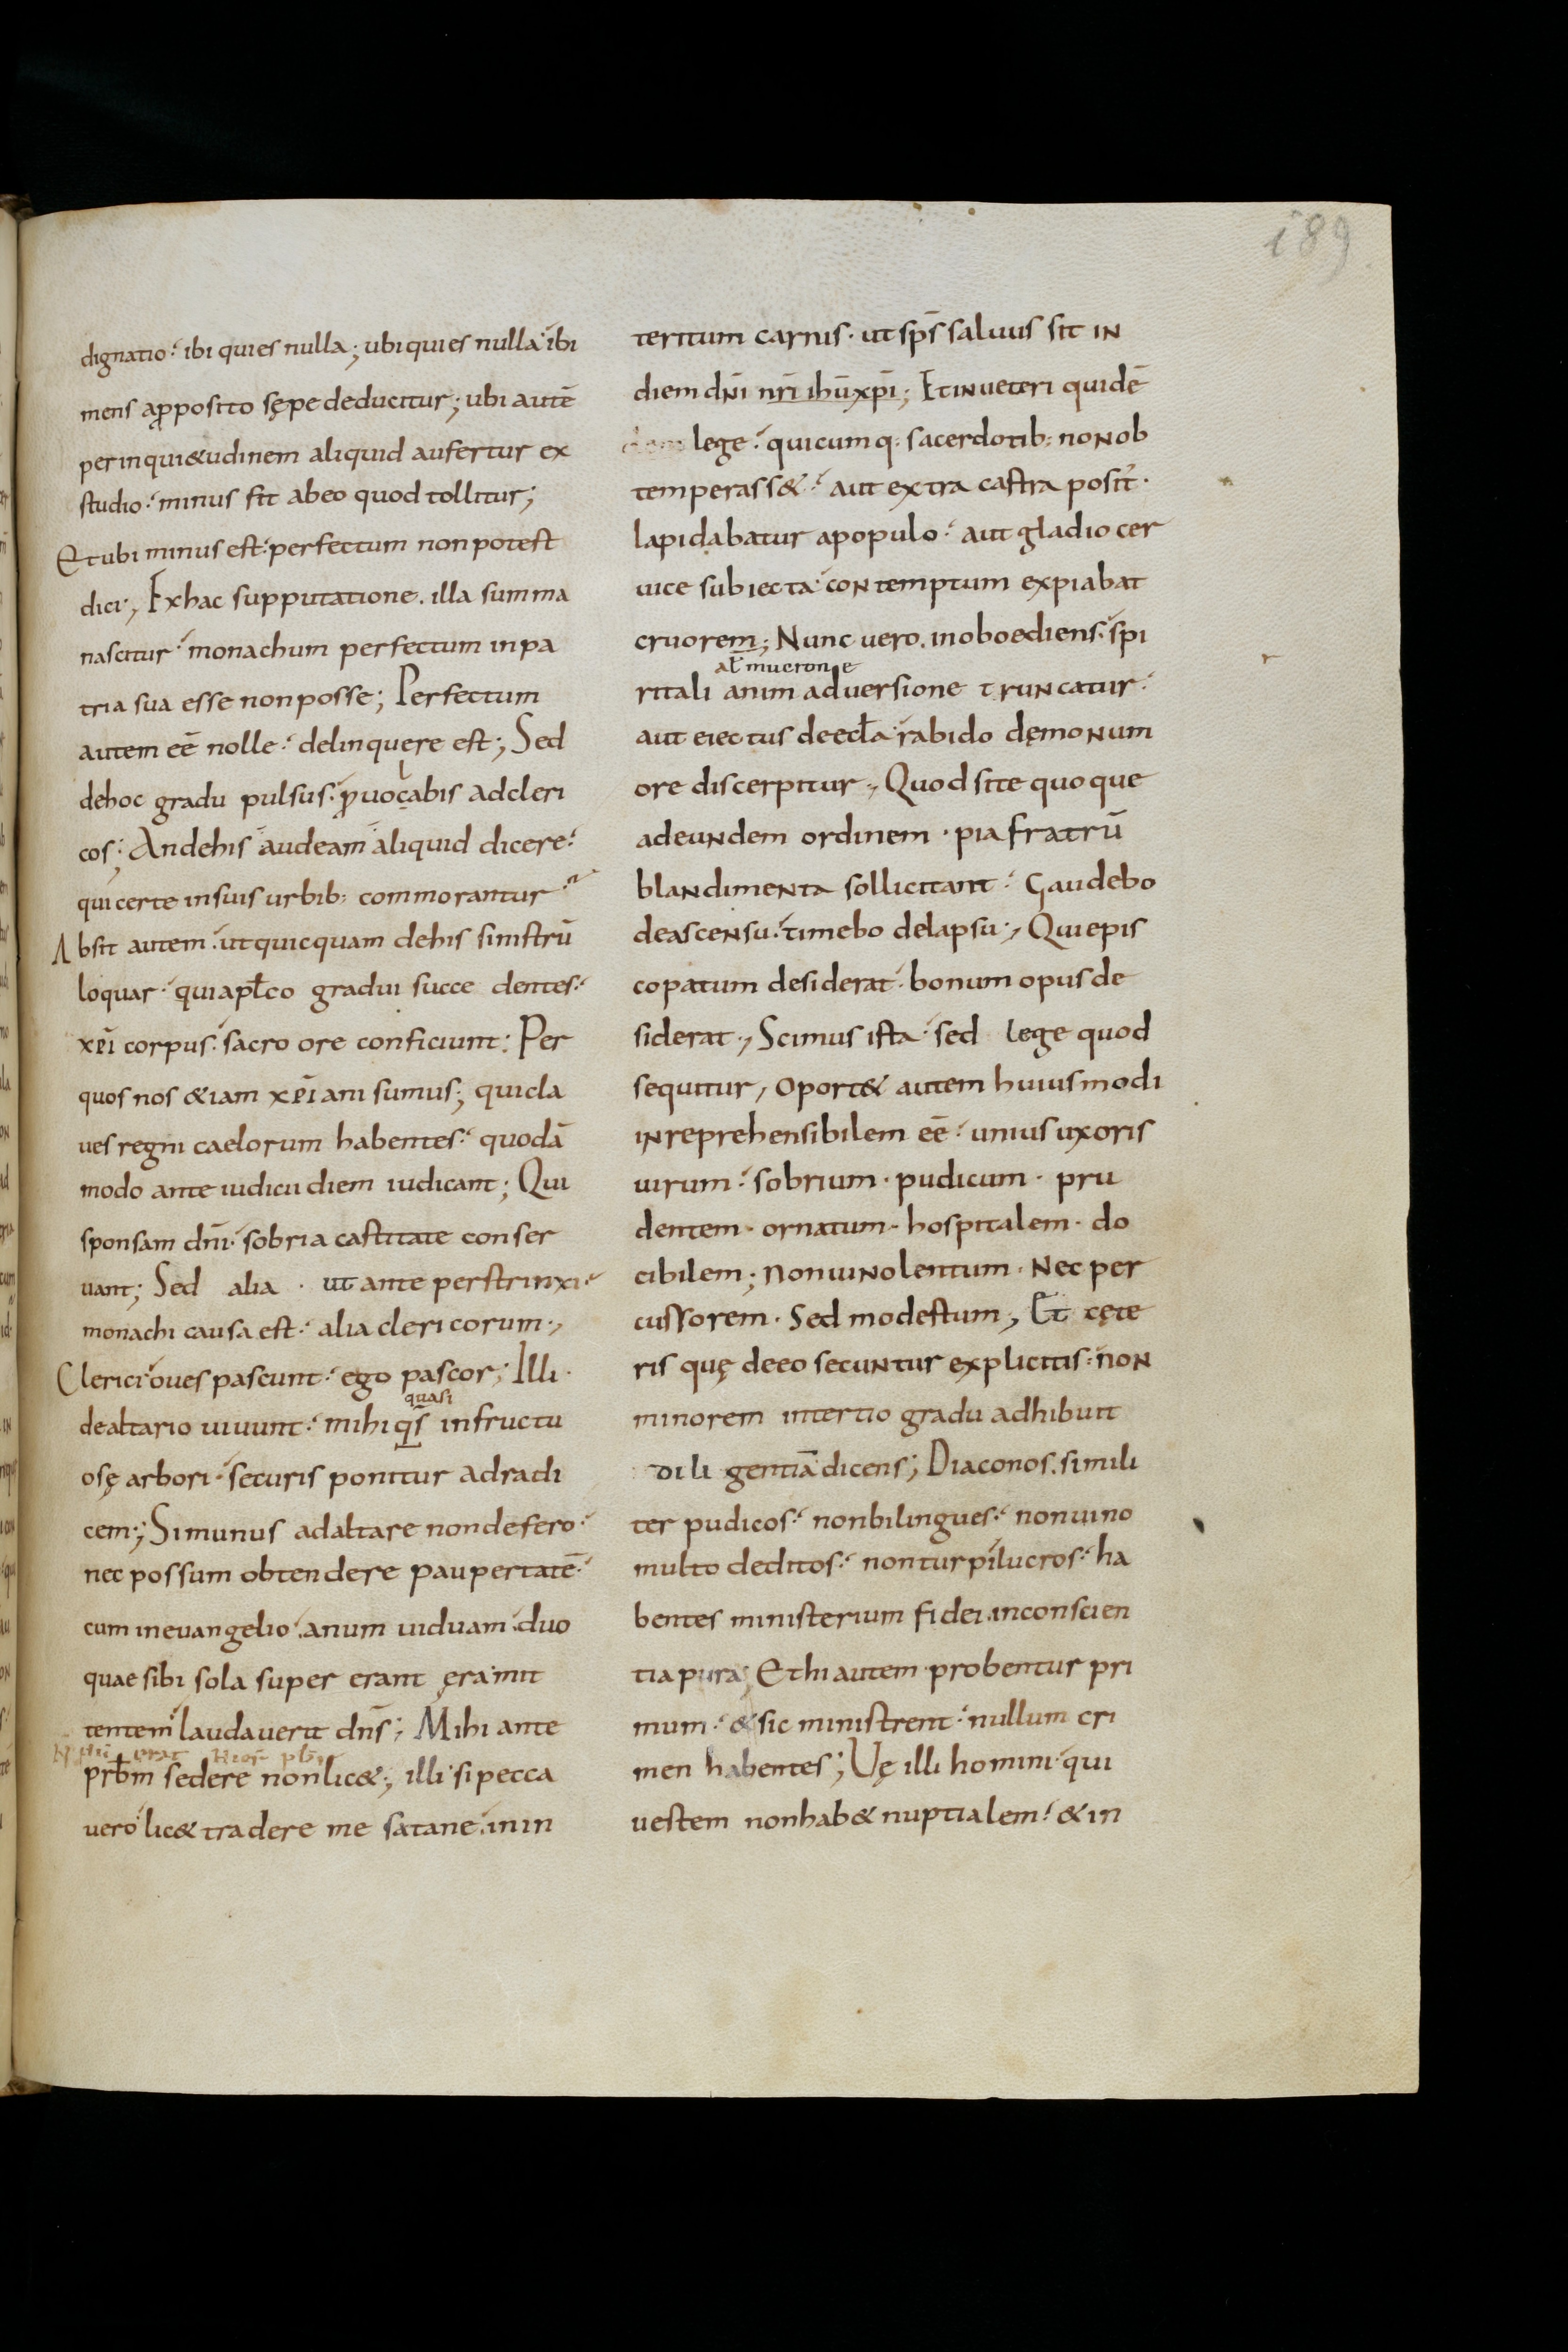 189
dignatio· ibi quies nulla; ubi quies nulla ibi
mens a ꝓposito sępe deducitur; ubi autē
per inqui&udinem aliquid aufertur ex
studio· minus fit ab eo quod tollitur;
Et ubi minus est· perfectum non potest
dici; Ex hac supputatione· illa summa
nascitur· monachum perfectum in pa
tria sua esse non posse; Perfectum
autem eē nolle· delinquere est; Sed
de hoc gradu pulsus· ꝓuocabis ad cleri
cos; An de his audeam aliquid dicere·
qui certe in suis urbib: commorantur
Absit autem· ut quicquam de his sinistrū
loquar· qui apłco gradui succe dentes·
xp̄i corpus· sacro ore conficiunt; Per
quos nos &iam xp̄iani sumus; qui cla
ues regni caelorum habentes· quodā
modo ante iudicii diem iudicant; Qui
sponsam dn̄i· sobria castitate conser
uant; Sed alia · ut ante perstrinxi·
monachi causa est· alia clericorum·,
Clerici oues pascunt· ego pascor; Illi·
quasi
de altario uiuunt· mihi qs̄ infructu
osę arbori· securis ponitur ad radi
cem·; Si munus ad altare non defero·
nec possum obtendere paupertatē·
cum in euangelio· anum uiduam· duo
quae sibi sola super erant ęra mit
tentem laudauerit dn̄s; Mihi ante
prb̄m sedere non lic&·; illi si pecca
uero lic& tradere me satane· in in
teritum carnis· ut sps̄ saluus sit in
diem dn̄i nr̄i ih̄u xp̄i; Et in ueteri quidē
lege· quicumq: sacerdotib: non ob
temperass&· aut extra castra posit̾·
lapidabatur a populo· aut gladio cer
uice subiecta· contemptum expiabat
cruorem; Nunc uero· inoboediens· spi
al̄ mucrone
ritali animaduersione truncatur·
aut eiectus de eccl̄a· rabido dęmonum
ore discerpitur·, Quod si te quoque
ad eundem ordinem · pia fratrū
blandimenta sollicitant· Gaudebo
de ascensu· timebo de lapsu·, Qui epis
copatum desiderat· bonum opus de
siderat·, Scimus ista· sed lege quod
sequitur, oport& autem huiusmodi
inreprehensibilem eē· unius uxoris
uirum· sobrium · pudicum · pru
dentem · ornatum · hospitalem · do
cibilem; non uinolentum · Nec per
cussorem · Sed modestum, Et cęte
ris quę de eo secuntur explicitis· non
minorem in tertio gradu adhibuit
dili gentiā dicens; Diaconos· simili
ter pudicos· non bilingues· non uino
multo deditos· non turpilucros· ha
bentes ministerium fidei in conscien
tia pura; Et hi autem probentur pri
mum· & sic ministrent· nullum cri
men habentes; Uę illi homini· qui
uestem non hab& nuptialem· & in